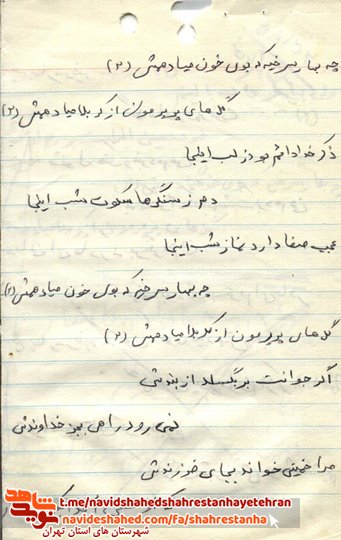 چه بهار سرخیکه بوی خون میاد همش (۲)
گلهای پرپرمون از کربلا میاد همش (۲)
ذکر خدا دائم بود ز لب اینجا
دم ز سنگرها سکوت شب اینجا
عجب صفا دارد نماز شب اینجا
چه بهار سرخی که بوی خون میاد همش (۲)
گلهای پرپرمون از کربلا میاد همش (۲)
اگر جوانت بگسلد از بندش
نمی رود راهی بجز خداوندش
مرا خمینی خواند بجای فرزندش
نوید شاهد
t.me/navidshahedshahrestanhayetehran
navideshahed.com/fa/shahrestanha
شهرستان های استان تهران